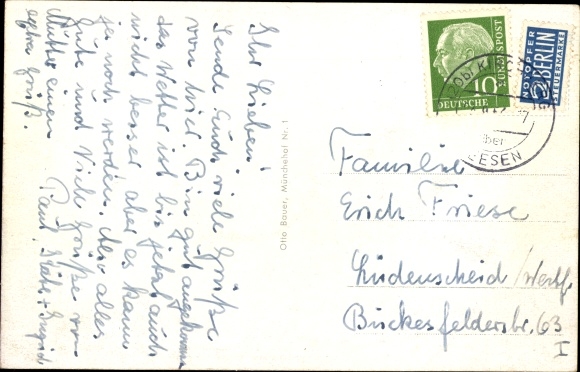 Ihr Lieben!
Sende Euch viele Grüße
von hier. Bin gut angekommen
das Wetter ist bis jetzt auch
nicht besser aber es kann
ja noch werden. Also alles
Gute und Viele Grüße von
Mutter einen
Gruß.
Paul, + Ingrid
Otto Bauer, Münchehof Nr. 1
10
DEUTSCHE
BUNDESPOST
NOTOPFER
2 BERLIN
STEUERMARKE
über
SEESEN
Familie
Erich Friese
Lüdenscheid/Westf.
Buckesfelderstr. 63
I